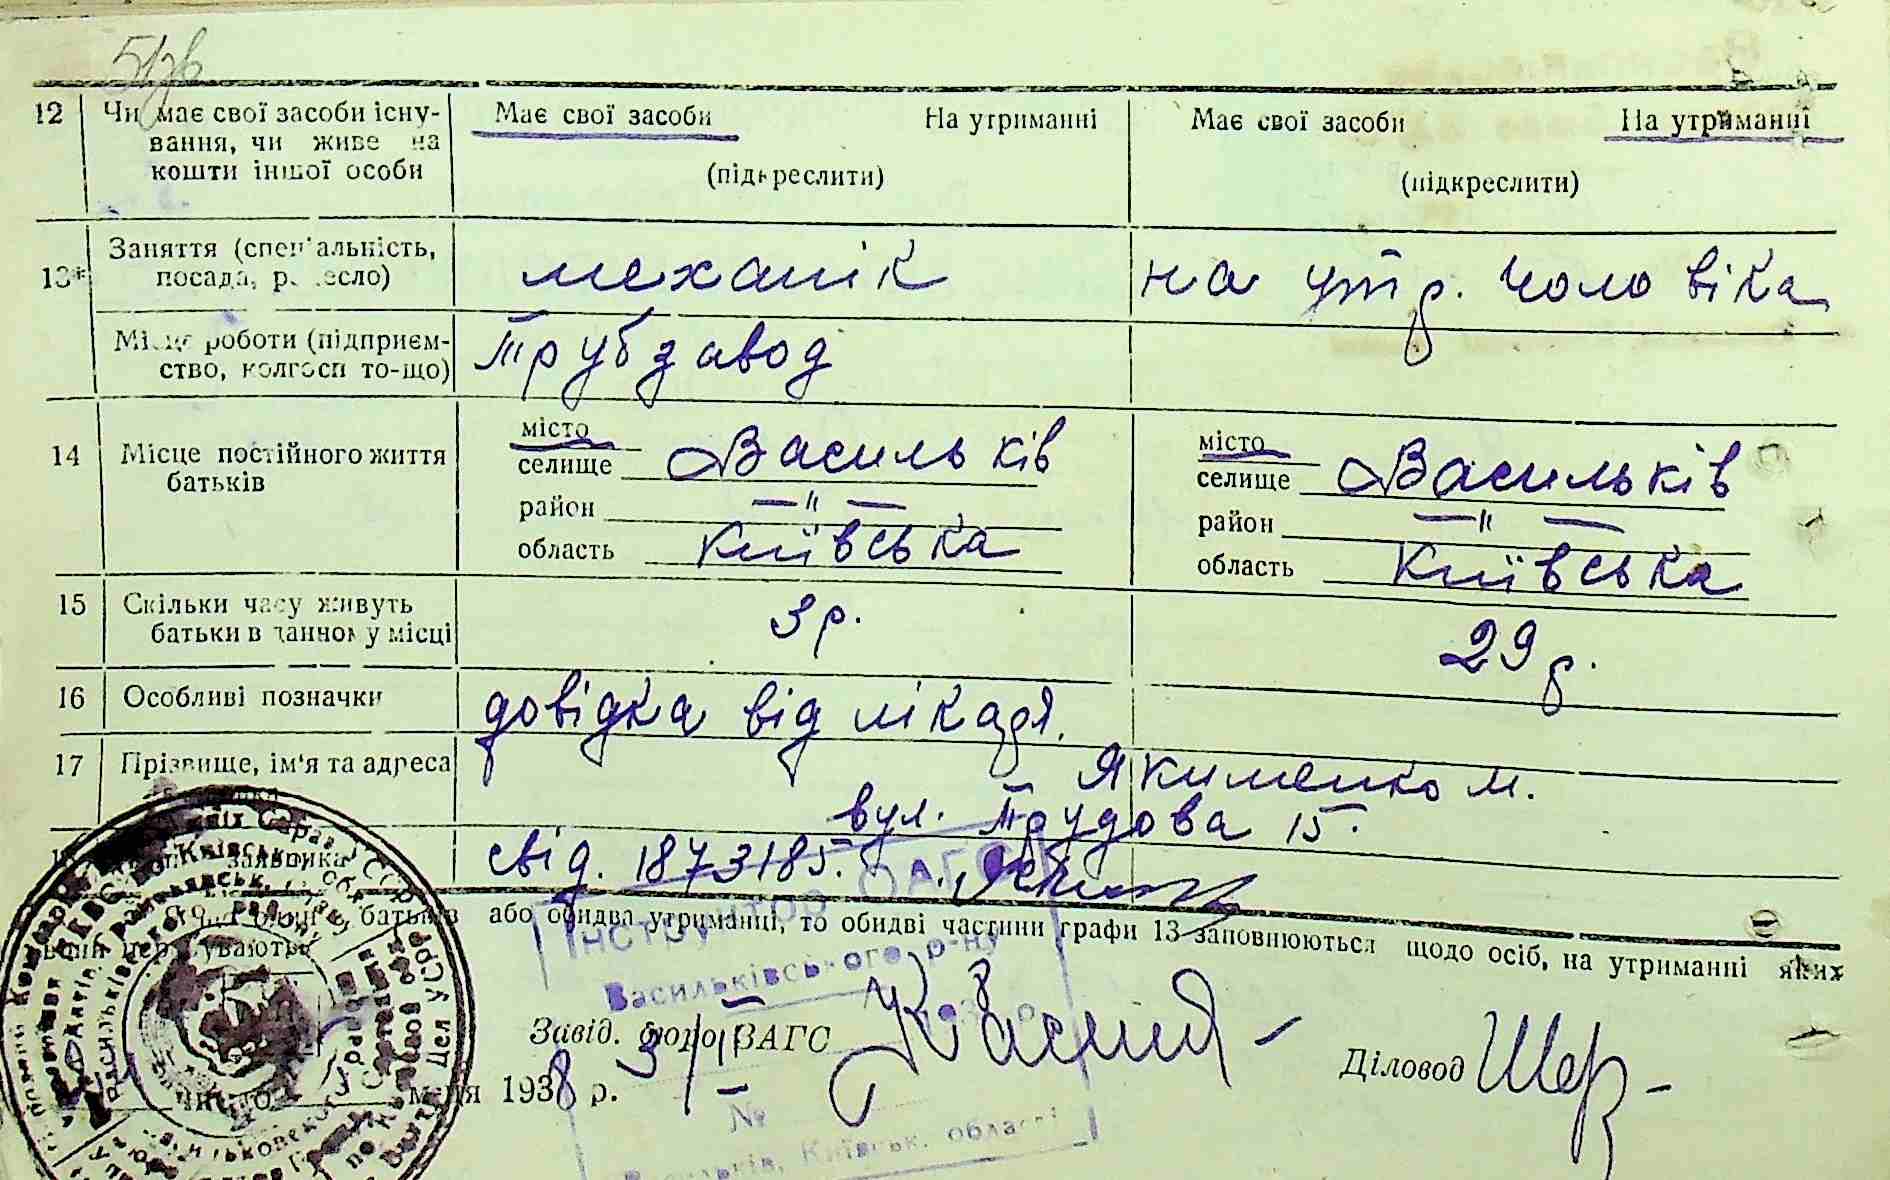 12 Чи має свої засоби існу- Має свої засоби На утриманні Має свої засоби На утриманні
вання, чи живе на
кошти іншої особи (підкреслити) (підкреслити)
13* Заняття (спеціальність, механік на утр. чоловіка
посада, ремесло)
Місце роботи (підприєм- Трубзавод
ство, колгосп то-що)
14 Місце постійного життя місто місто
батьків селище Васильків селище Васильків
район — " — район — " —
область Київська область Київська
15 Скільки часу живуть 3 р. 29 р.
батьки в данному місці
16 Особливі позначки довідка від лікаря.
17 Прізвище, ім'я та адреса Якименко М.
вул. Трудова 15.
заявника свід. 1873185.
батьків або обидва утриманні, то обидві частини графи 13 заповнюються щодо осіб, на утриманні яких
вони перебувають
Васильківського р-ну
Завід. бюро ЗАГС
Діловод Шер
число 3/II м-ця 1938 р.
№
Васильків, Київськ. області